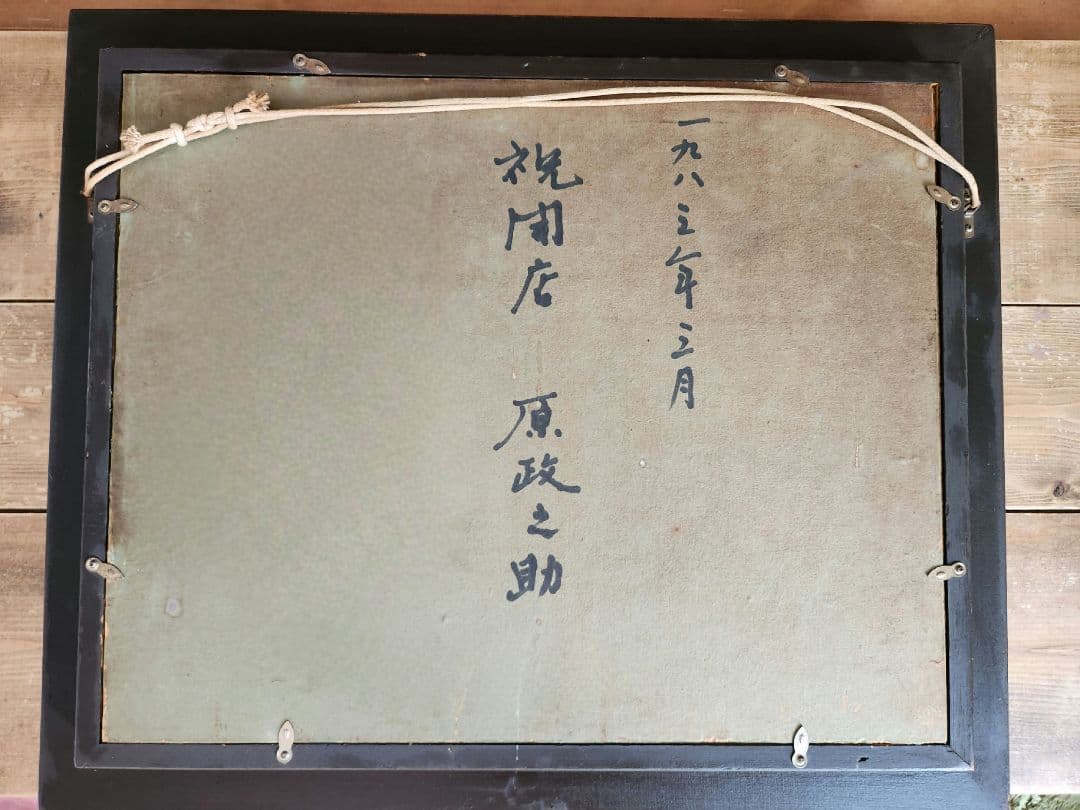 一九八三年三月
祝開店 原政之助